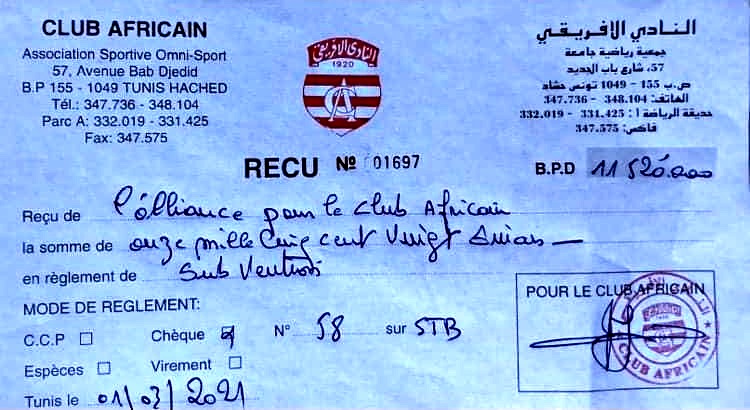 CLUB AFRICAIN
Association Sportive Omni-Sport
57, Avenue Bab Djedid
B.P 155 - 1049 TUNIS HACHED
Tél.: 347.736 - 348.104
Parc A: 332.019 - 331.425
Fax: 347.575
النادي الإفريقي
1920
CA
النادي الافريقي
جمعية رياضية جامعة
57، شارع باب الجديد
ص.ب 155 - 1049 تونس حشاد
الهاتف: 348.104 - 347.736
حديقة الرياضة أ : 331.425 - 332.019
فاكس: 347.575
RECU Nº 01697
B.P.D 11 520.000
Reçu de L'Alliance pour le Club Africain
la somme de onze mille cinq cent vingt Dinars
en règlement de Subventions
MODE DE REGLEMENT:
C.C.P ☐ Chèque ☒ N° 58 sur STB
Espèces ☐ Virement ☐
Tunis le 01/03/2021
POUR LE CLUB AFRICAIN
CLUB AFRICAIN